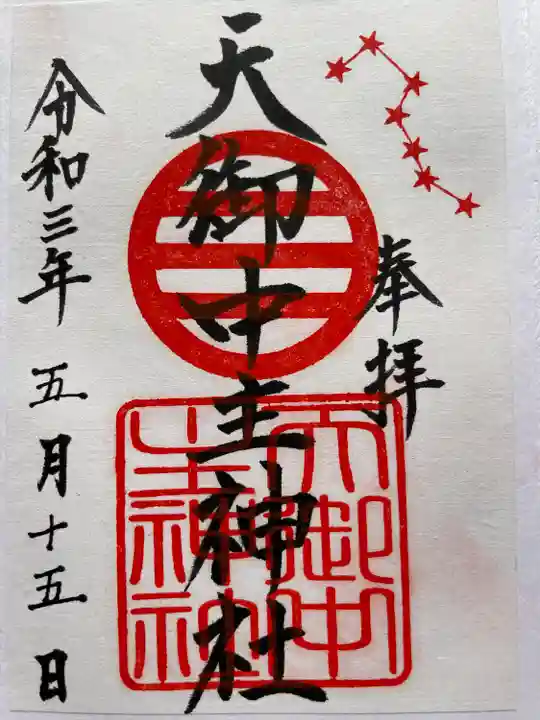 奉拝
天御中主神社
令和三年 五月十五日
天御中
主神社